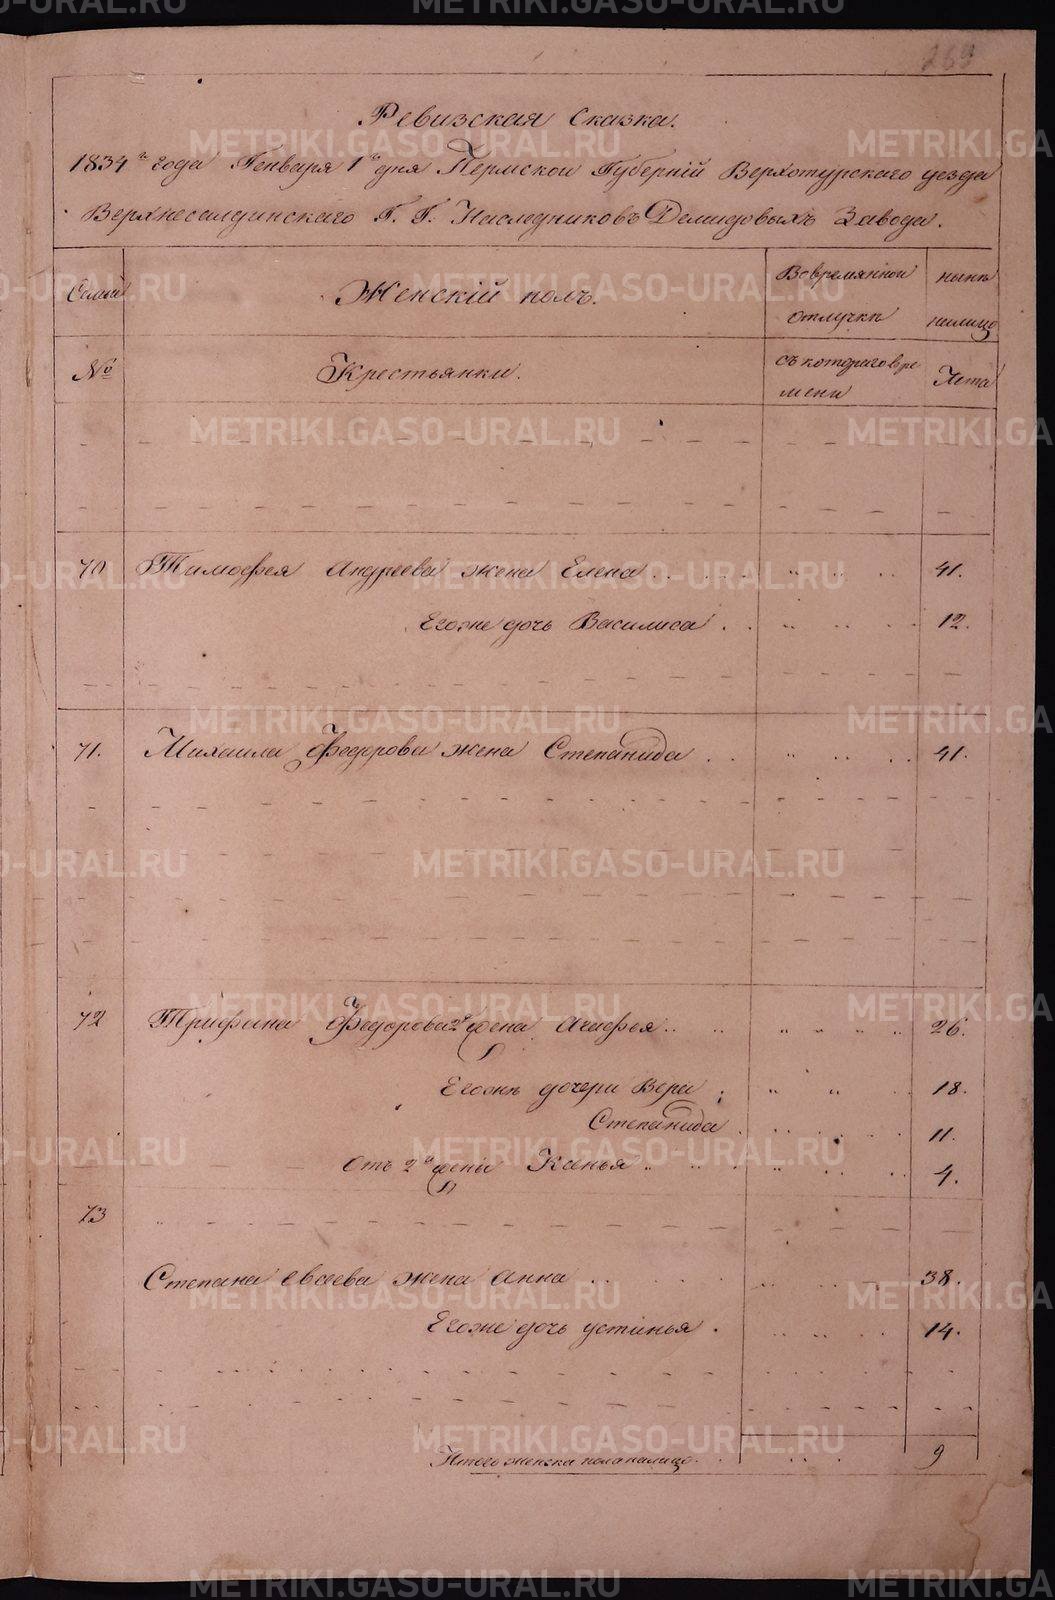 269
Ревизская Сказка.
1834го года Генваря 1го дня Пермской Губерніи Верхотурскаго уезда
Верхнесалдинскаго Г. Г. Наследниковъ Демидовыхъ Завода.
Семьи Женскій полъ. Вовремянной отлучкѣ нынѣ налицо
№ Крестьянки. съ котораго вре мени Лета
70 Тимофея Андреева жена Елена 41.
Егоже дочь Василиса 12.
71. Михаила Федорова жена Степанида 41.
72 Трифана Федорова 2я жена Агафья 26.
Егожъ дочери Вера 18.
Степанида 11.
Отъ 2й жены Ксенья 4.
73
Степана Евсеева жена Анна 38.
Егоже дочь Устинья 14.
Итого женска пола налицо 9
METRIKI.GASO-URAL.RU